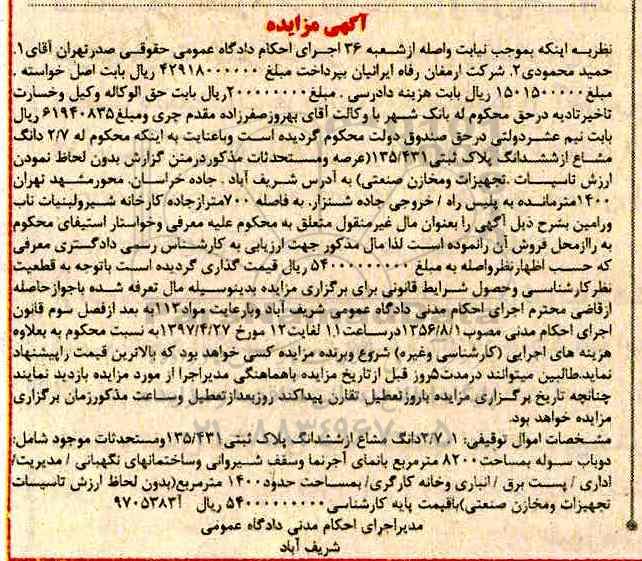 آگهی مزایده
نظربه اینکه بموجب نیابت واصله ازشعبه ۳۶ اجرای احکام دادگاه عمومی حقوقی صدرتهران آقای۱.
حمید محمودی۲. شرکت ارمغان رفاه ایرانیان بپرداخت مبلغ ۴۲۹۱۸۰۰۰۰۰۰ ریال بابت اصل خواسته .
مبلغ۱۵۰۱۵۰۰۰۰۰ ریال بابت هزینه دادرسی . مبلغ۲۰۰۰۰۰۰۰۰ریال بابت حق الوکاله وکیل وخسارت
تاخیرتادیه درحق محکوم له بانک شهر با وکالت آقای بهروزصفرزاده مقدم چری ومبلغ۶۱۹۴۰۸۳۵ ریال
بابت نیم عشردولتی درحق صندوق دولت محکوم گردیده است وباعنایت به اینکه محکوم له ۲/۷ دانگ
مشاع ازششدانگ پلاک ثبتی۱۳۵/۴۳۱(عرصه ومستحدثات مذکوردرمتن گزارش بدون لحاظ نمودن
ارزش تاسیسات .تجهیزات ومخازن صنعتی) به آدرس شریف آباد . جاده خراسان. محورمشهد تهران
۱۴۰۰مترمانده به پلیس راه / خروجی جاده شنزار. به فاصله ۷۰۰مترازجاده کارخانه شیرولبنیات ناب
ورامین بشرح ذیل آگهی را بعنوان مال غیرمنقول متعلق به محکوم علیه معرفی وخواستار استیفای محکوم
به راازمحل فروش آن رانموده است لذا مال مذکور جهت ارزیابی به کارشناس رسمی دادگستری معرفی
که حسب اظهارنظرواصله به مبلغ ۵۴۰۰۰۰۰۰۰۰۰ ریال قیمت گذاری گردیده است باتوجه به قطعیت
نظرکارشناسی وحصول شرایط قانونی برای برگزاری مزایده بدینوسیله مال تعرفه شده باجوازحاصله
ازقاضی محترم اجرای احکام مدنی دادگاه عمومی شریف آباد وبارعایت مواد۱۱۳به بعد ازفصل سوم قانون
اجرای احکام مدنی مصوب۱۳۵۶/۸/۱درساعت۱۱ لغایت۱۲ مورخ ۱۳۹۷/۴/۲۷به نسبت محکوم به بعلاوه
هزینه های اجرایی (کارشناسی وغیره) شروع وبرنده مزایده کسی خواهد بود که بالاترین قیمت راپیشنهاد
نماید.طالبین میتوانند درمدت۵روز قبل ازتاریخ مزایده باهماهنگی مدیراجرا از مورد مزایده بازدید نمایند
چنانچه تاریخ برگزاری مزایده باروزتعطیل تقارن پیداکند روزبعدازتعطیل وساعت مذکورزمان برگزاری
مزایده خواهد بود.
مشخصات اموال توقیفی: ۱. ۲/۷دانگ مشاع ازششدانگ پلاک ثبتی۱۳۵/۴۳۱ومستحدثات موجود شامل:
دوباب سوله بمساحت۸۲۰۰ مترمربع بانمای آجرنما وسقف شیروانی وساختمانهای نگهبانی / مدیریت/
اداری / پست برق / انباری وخانه کارگری/ بمساحت حدود۱۴۰۰ مترمربع(بدون لحاظ ارزش تاسیسات
تجهیزات ومخازن صنعتی)باقیمت پایه کارشناسی۵۴۰۰۰۰۰۰۰۰۰ ریال آ۹۷۰۵۳۸۳
مدیراجرای احکام مدنی دادگاه عمومی
شریف آباد